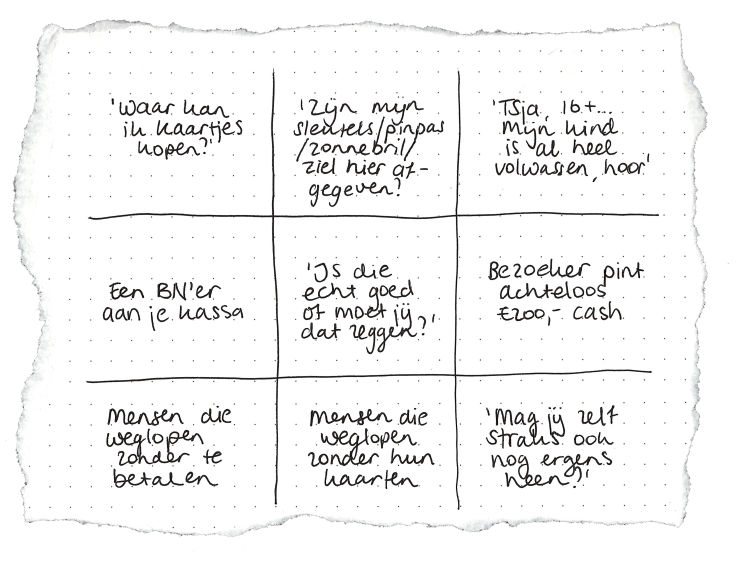 'Waar kan
ik kaartjes
kopen?'
'Zijn mijn
sleutels/pinpas
/zonnebril/
ziel hier af-
gegeven?
'Tsja, 16+...
Mijn kind
is al heel
volwassen, hoor.'
Een BN'er
aan je kassa
'Is die
echt goed
of moet jij
dat zeggen?'
Bezoeker pint
achteloos
€200,- cash
Mensen die
weglopen
zonder te
betalen
Mensen die
weglopen
zonder hun
kaarten
'Mag jij zelf
straks ook
nog ergens
heen?'